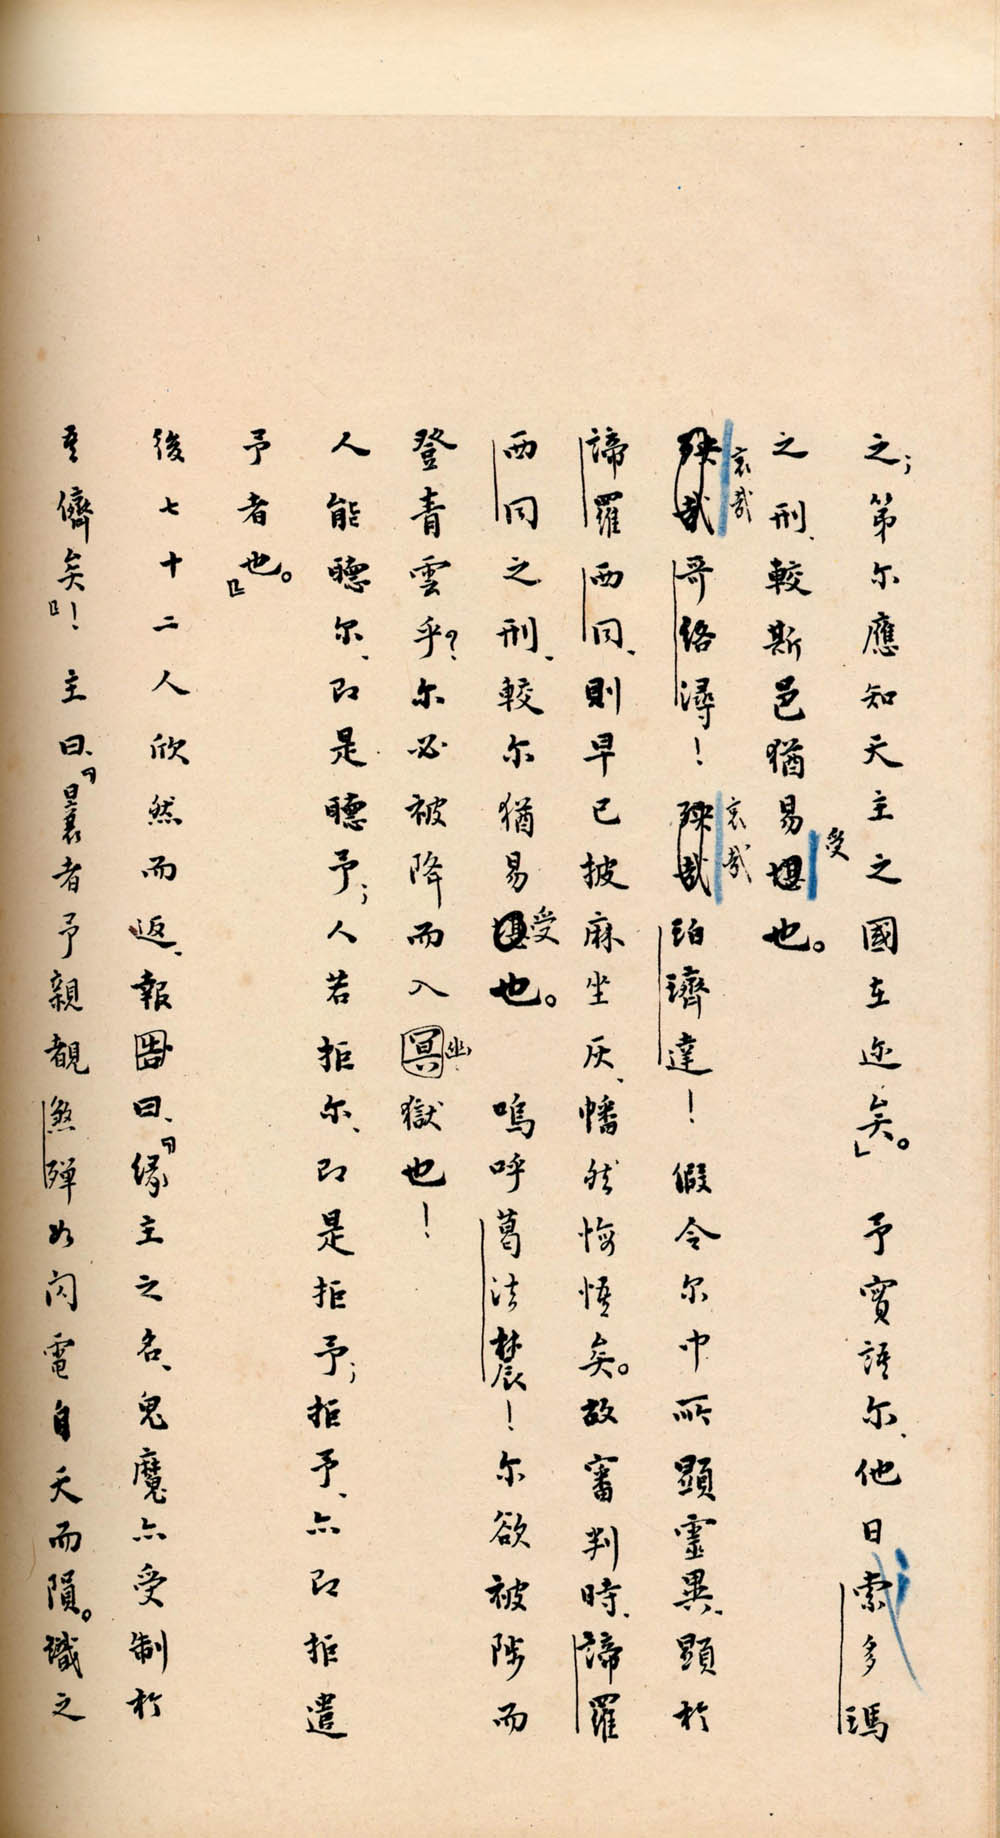 之；第尔應知天主之國在迩矣。」予實語尔、他日索多瑪
之刑、較斯邑猶易堪也。
受
殃哉哥络潯！殃哉珀璾達！假令尔中所顯靈異、顯於
哀哉
哀哉
諦羅西同、則早已披麻坐灰、幡然悔悟矣。故審判時、諦羅
西同之刑、較尔猶易受也。嗚呼葛法農！尔欲被陟而
登青雲乎？尔必被降而入冥獄也！
幽
人能聽尔、即是聽予；人若拒尔、即是拒予；拒予、亦即拒遣
予者也。』
後七十二人欣然而返、報曰、『緣主之名、鬼魔亦受制於
吾儕矣』！主曰、『曩者予親覩煞殫如閃電自天而隕。識之